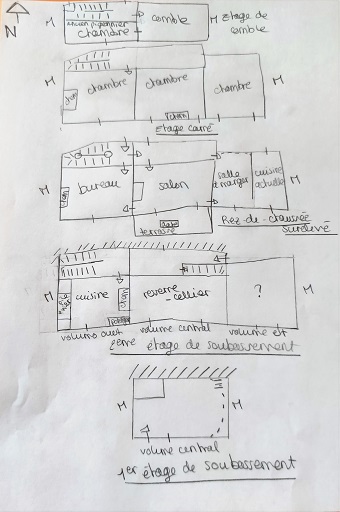 N
M
ancien pigeonnier
chambre
comble
M
étage de
comble
M
chem
chambre
chambre
chambre
M
chem
étage carré
M
bureau
salon
salle
à manger
cuisine
actuelle
M
terrasse
Rez-de-chaussée
surélevé
M
cuisine
chem
reserre
-cellier
?
M
potager
volume ouest
volume central
volume est
2eme étage de soubassement
M
M
volume central
1er étage de soubassement